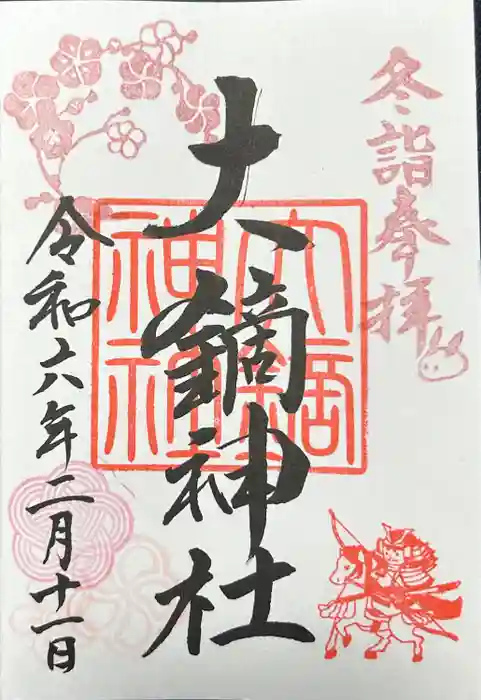 冬詣奉拝
大鏑神社
大鏑神社
令和六年二月十一日